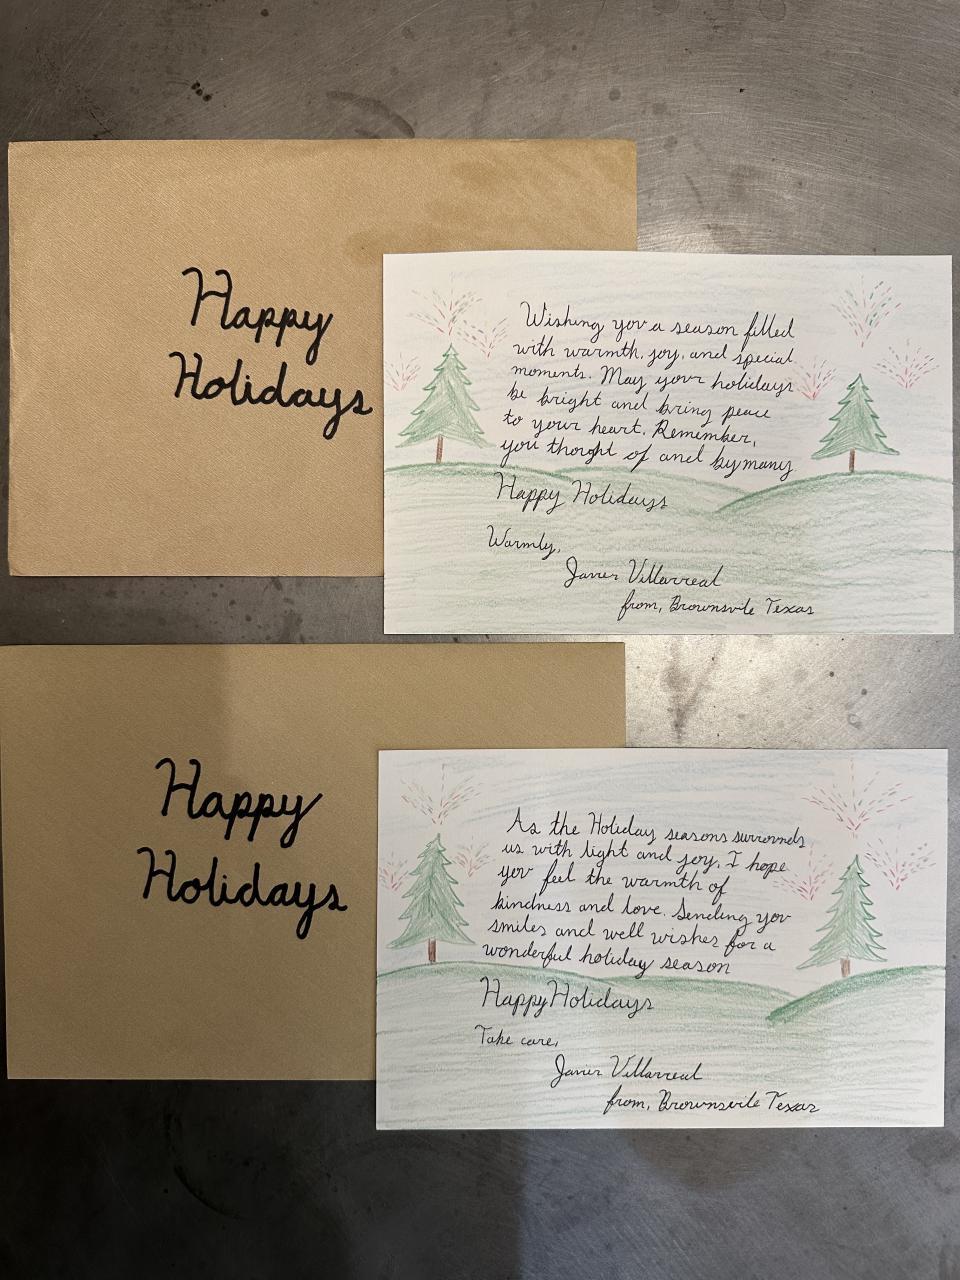 Happy
Holidays
Wishing you a season filled
with warmth, joy, and special
moments. May your holidays
be bright and bring peace
to your heart. Remember,
you thought of and by many
Happy Holidays
Warmly,
Javier Villarreal
from, Brownsvile Texas
Happy
Holidays
As the Holiday seasons surrounds
us with light and joy, I hope
you feel the warmth of
kindness and love. Sending you
smiles and well wishes for a
wonderful holiday season
Happy Holidays
Take care,
Javier Villarreal
from, Brownsvile Texas